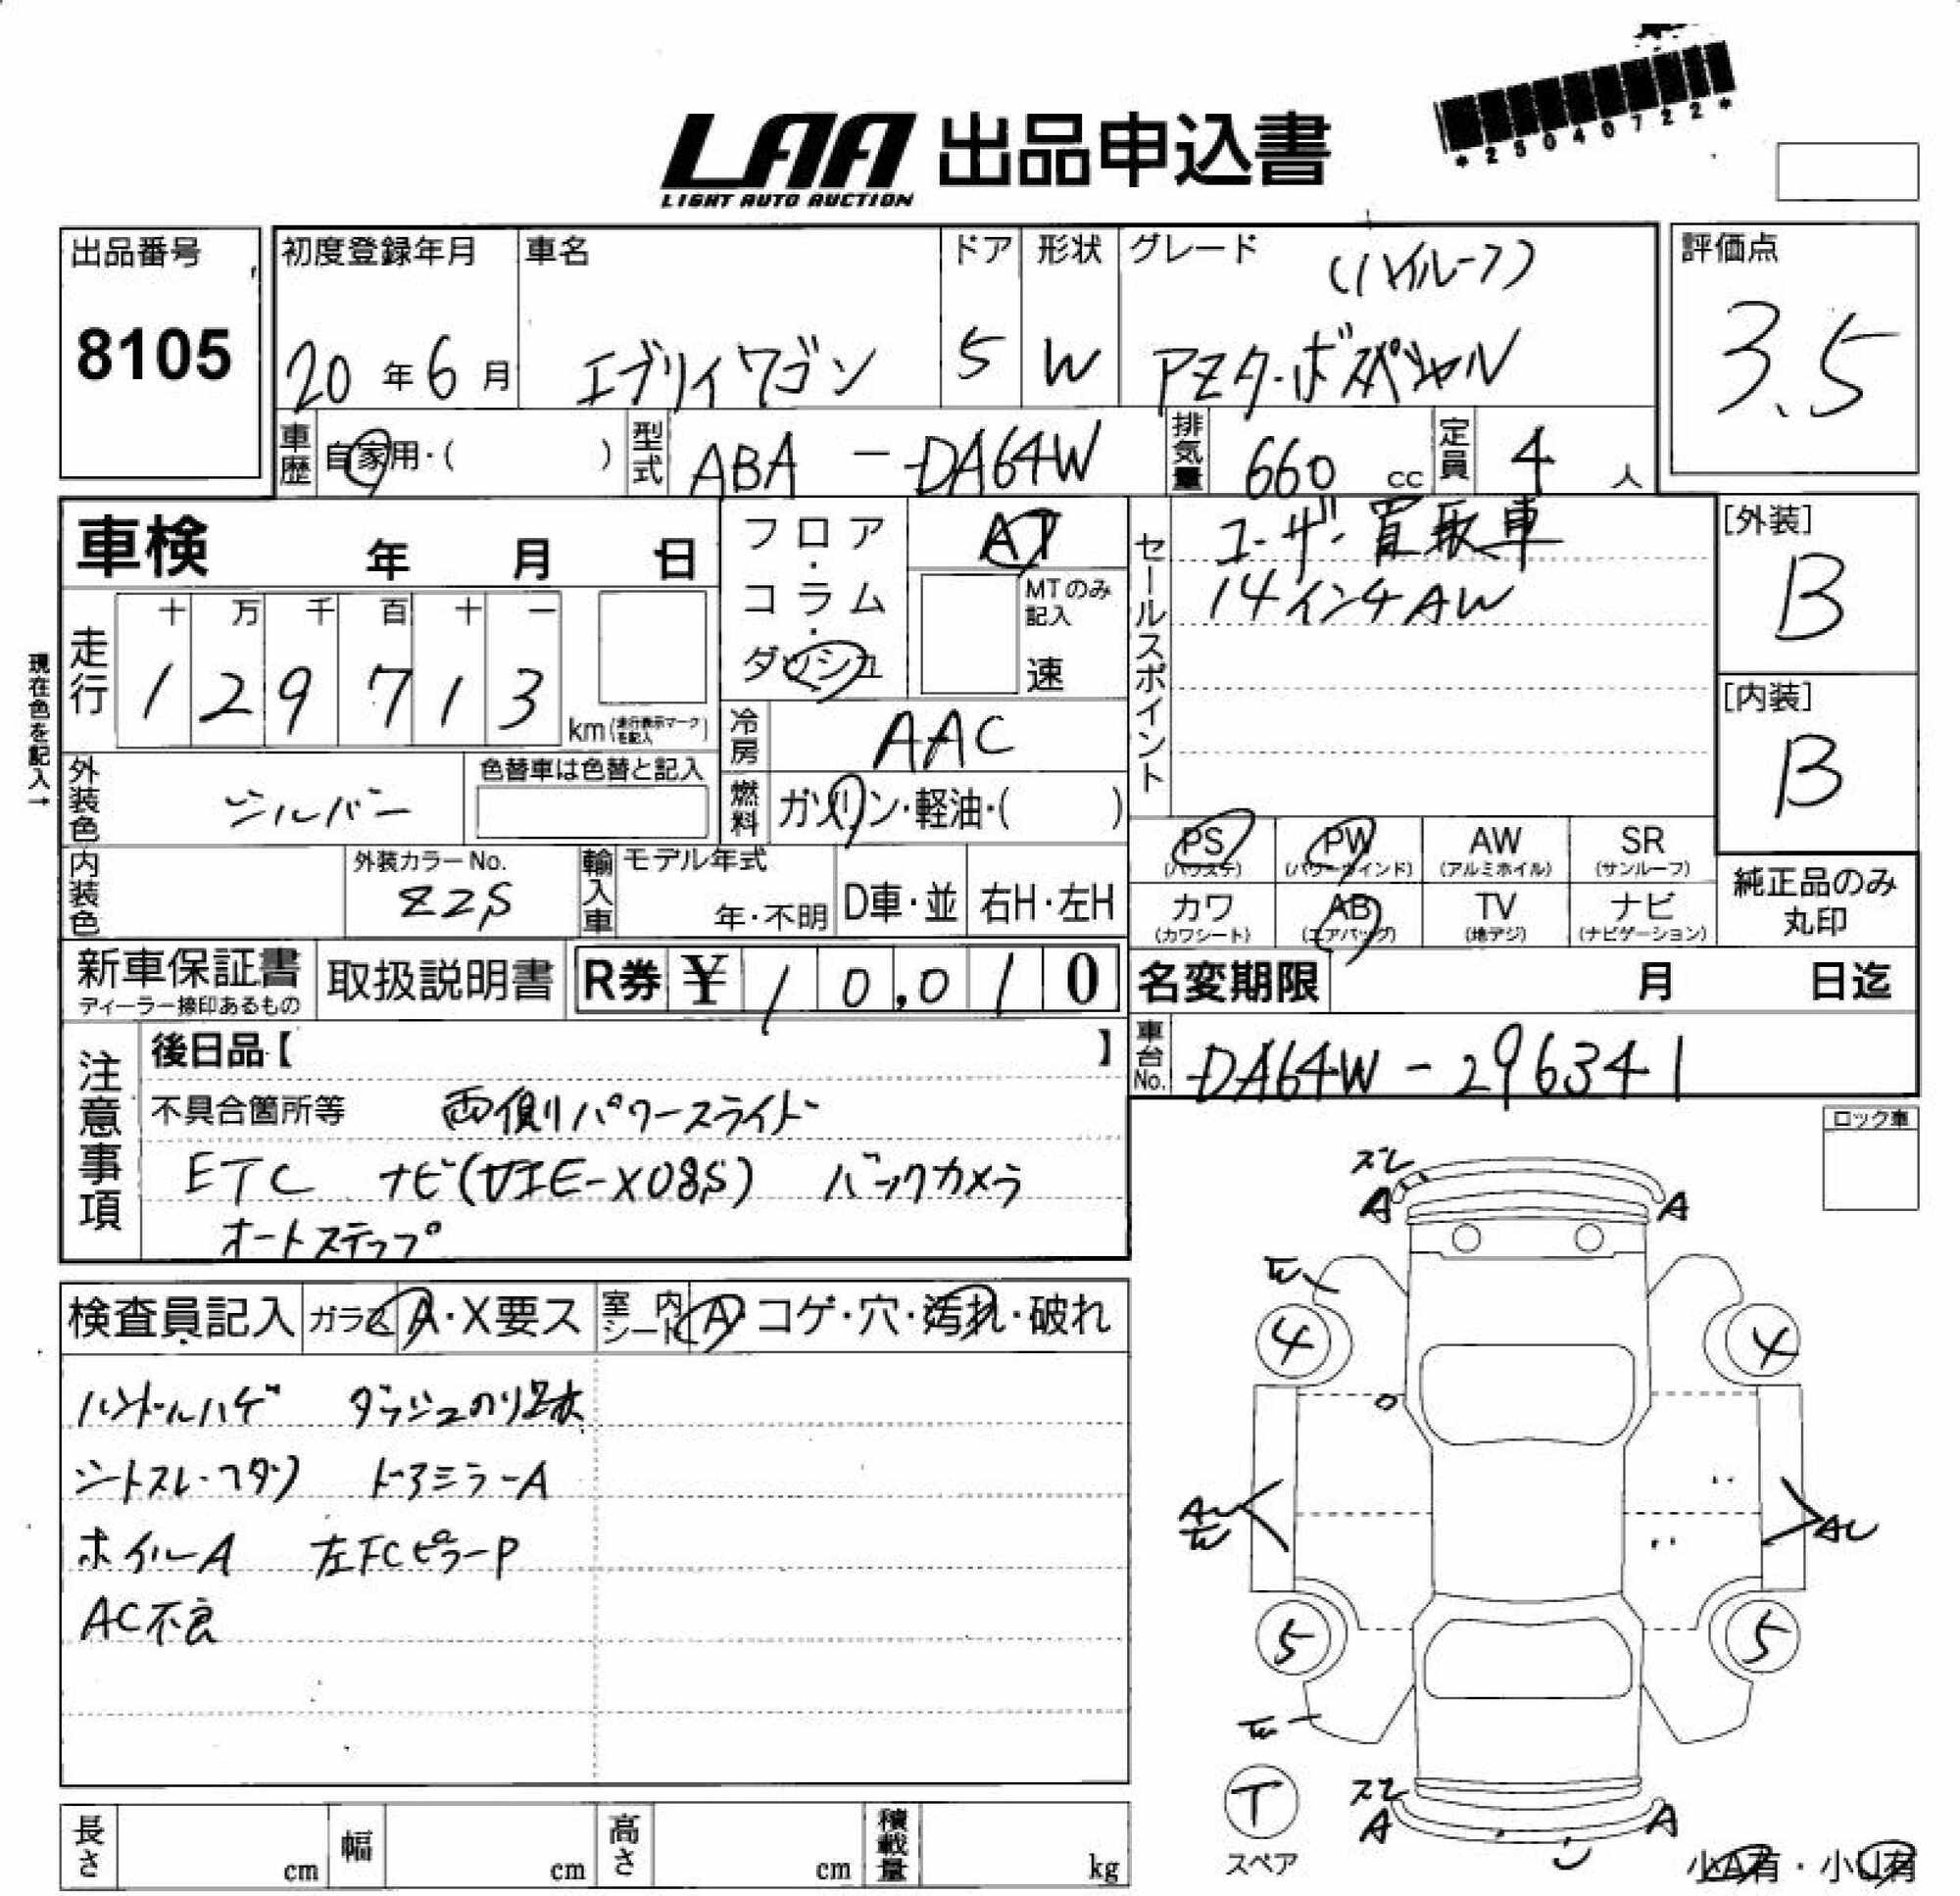 *25040722*
LAA 出品申込書
LIGHT AUTO AUCTION
出品番号
8105
初度登録年月
20年6月
車名
エブリイワゴン
ドア
5
形状
W
グレード (ハイルーフ)
PZターボスペシャル
評価点
3.5
車歴 自家用・( )
型式 ABA - DA64W
排気量 660 cc
定員 4 人
車検 年 月 日
走行
十 万 千 百 十 一
1 2 9 7 1 3
km(走行表示マークを記入)
フロア・コラム・ダッシュ
AT
MTのみ記入
速
冷房 AAC
燃料 ガソリン・軽油・( )
現在色を記入→
外装色 シルバー
色替車は色替と記入
内装色
外装カラーNo.
Z2S
輸入車 モデル年式
年・不明 D車・並 右H・左H
セールスポイント
ユーザー買取車
14インチAW
[外装]
B
[内装]
B
PS (パワステ) PW (パワーウインド) AW (アルミホイル) SR (サンルーフ)
カワ (カワシート) AB (エアバッグ) TV (地デジ) ナビ (ナビゲーション)
純正品のみ
丸印
新車保証書
ディーラー捺印あるもの
取扱説明書
R券 ¥ 10,010
名変期限 月 日迄
車台No. DA64W-296341
注意事項
後日品【 】
不具合箇所等 両側パワースライド
ETC ナビ(VIE-X08S) バックカメラ
オートステップ
ロック車
検査員記入 ガラス A・X要ス 室内シート A コゲ・穴・汚れ・破れ
ハンドルハゲ ダッシュのり跡
シートスレ・ヘタリ ドアミラーA
ホイルA 左FCピラーP
AC不良
ズレ
A A
4 4
AU
5 5
T
スペア
ズレ
A A
小A有・小U有
長さ cm 幅 cm 高さ cm 積載量 kg